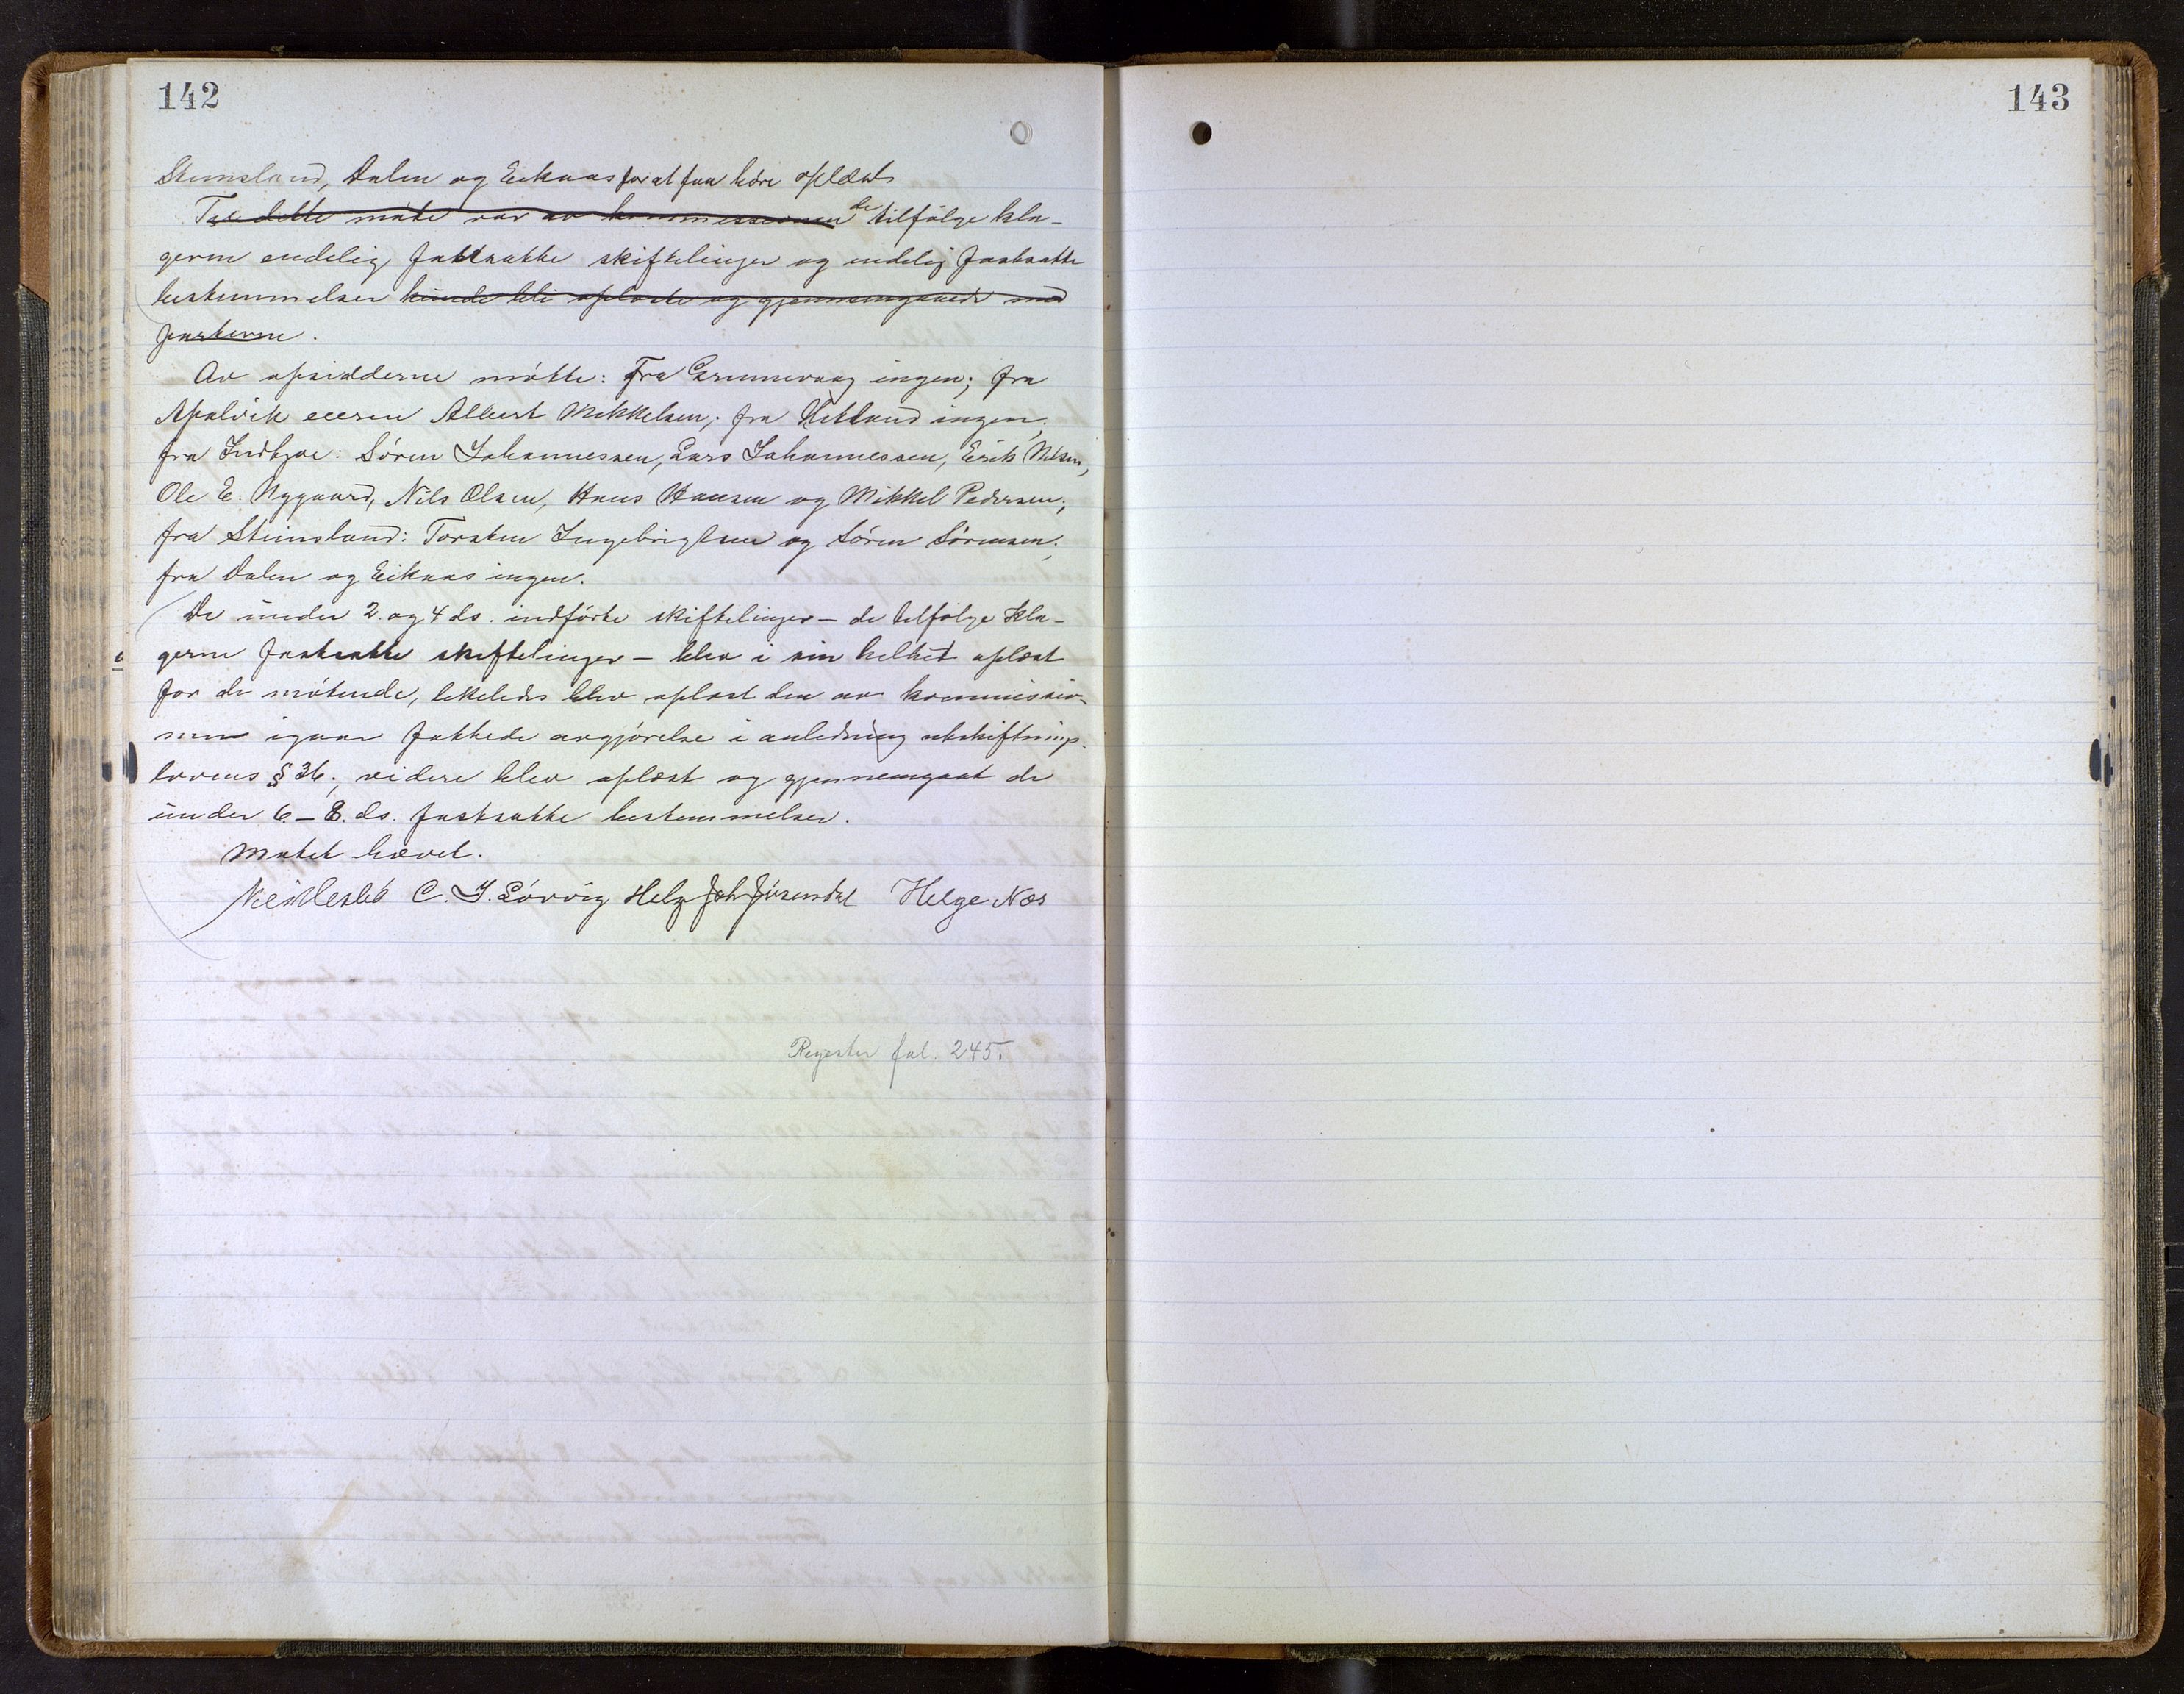 142
Steinsland, Dalen og Eikaas for at faa høre oplæst
Til dette møte var av kommissionen de tilfølge kla-
gerne endelig fastsatte skiftelinjer og endelig fastsatte
bestemmelser kunde bli oplæste og gjennemgaaede med
parterne.
Av opsidderne møtte: Fra Grunnevaag ingen; fra
Apalvik eieren Albert Mikkelsen; fra Hetland ingen;
fra Indbjoe: Søren Johannessen, Lars Johannessen, Erik Nilsen,
Ole E. Nygaard, Nils Olsen, Hans Hansen og Mikkel Pedersen;
fra Steinsland: Torsten Ingebrigtsen og Søren Sørensen;
fra Dalen og Eikaas ingen.
De under 2. og 4 ds. indførte skiftelinjer – de tilfølge kla-
gerne fastsatte skiftelinjer – blev i sin helhet oplæst
for de møtende, likeledes blev oplæst den av kommissio-
nen igaar fattede avgjørelse i anledning utskiftnings-
lovens § 36; videre blev oplæst og gjennemgaat de
under 6.–8. ds. fastsatte bestemmelser.
Møtet hævet.
C. J. Sørvig Helg Joh Jüsendal Helge Næs
Register fol. 245.
143